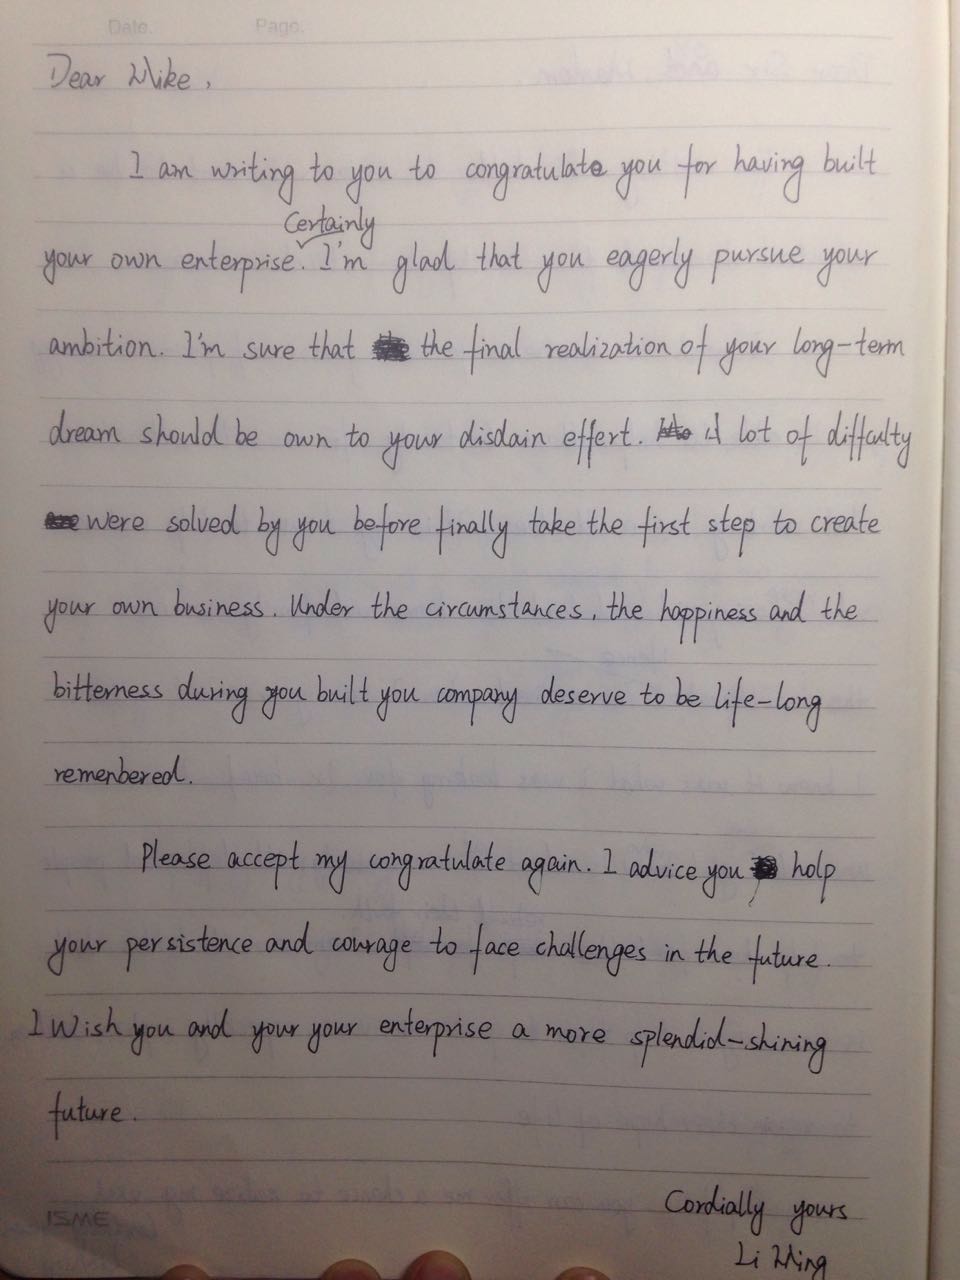 Date.  Page.
Dear Mike,
I am writing to you to congratulate you for having built
Certainly
your own enterprise. I'm glad that you eagerly pursue your
ambition. I'm sure that the final realization of your long-term
dream should be own to your disdain effert. A lot of diffculty
were solved by you before finally take the first step to create
your own business. Under the circumstances, the happiness and the
bitterness during you built you company deserve to be life-long
remenbered.
Please accept my congratulate again. I advice you holp
your persistence and courage to face challenges in the future.
I Wish you and your your enterprise a more splendid-shining
future.
Cordially yours
Li Ming
ISME